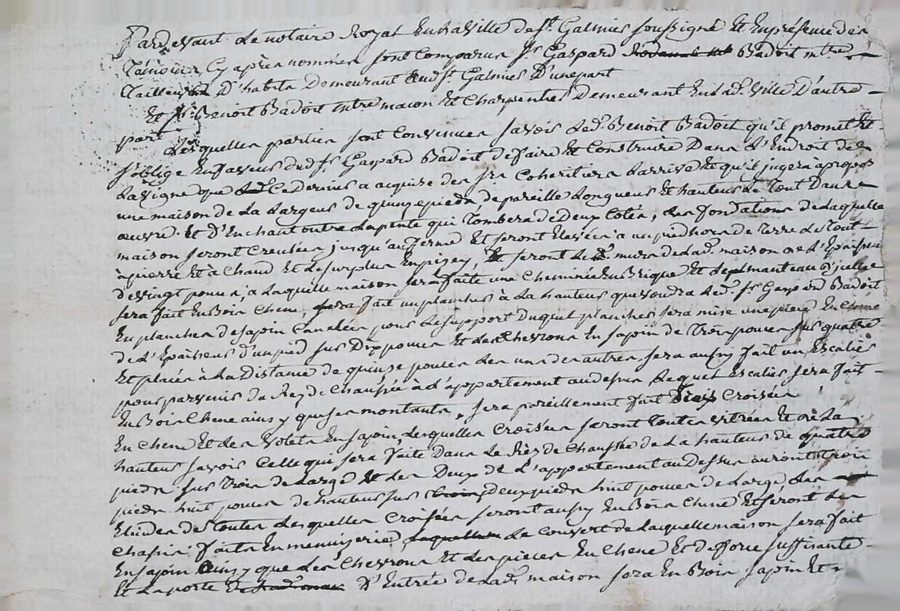 Pardevant Le notaire Royal En la ville de St. Galmier soussigné Et En présence des
Témoins Cy apres nommés sont Comparus Sr. Gaspard Badoit mtre.
Tailleur D'habits Demeurant aud. St. Galmier D'une part
Et Sr. Benoit Badoit mtre macon Et Charpentier Demeurant En lad. ville D'autre
part
Lesquelles parties sont Convenues savoir Led. Benoit Badoit qu'il promet Et
s'oblige En faveur dud. Sr. Gaspard Badoit de faire Et Construire Dans L'Endroit de
La vigne que Ce dernier a acquise des Srs. Coheritiers Larrivé Et qu'il jugera apropos
une maison de La Largeur de quinze pieds de pareille Longueur Et hauteur Le Tout Dans
œuvre Et D'En haut outre La pente qui Tombera de deux Cotés, Les fondations de Laquelle
maison seront Creusées jusqu'au ferme Et seront Elevées a un pied hors de Terre Le Tout
a pierre Et a Chaud Et Le surplus En pizey, Et seront Les murs de lad. maison de L'Epaisseur
de vingt pouces, a Laquelle maison sera faite une Cheminée En Brique Et Le manteau d'jcelle
sera fait En Bois Chene, sera fait un plancher à La hauteur que voudra Led. Sr. Gaspard Badoit
En planches de sapin Canelées pour Le support Duquel plancher sera mise une piece En Chene
de L'Epaisseur d'un pied sur Dix pouces Et des Chevrons En sapin de Trois pouces sur quatre
Et placés à La Distance de quinze pouces Les uns des autres, sera aussy fait un Escalier
pour parvenir du Rez de Chaussée à L'appartement audessus Lequel Escalier sera fait
En Bois Chene ainsy que ses montants, sera pareillement fait Trois Croisées
En Chene Et Les volets En sapin, Lesquelles Croisées seront Toutes vitrées Et de La
hauteur savoir Celle qui sera faite Dans Le Rez de Chaussée de La hauteur de quatre
pieds sur Trois de Large Et Les Deux de L'appartement audessus auront trois
pieds huit pouces de hauteur sur deux pieds huit pouces de Large, Les
de toutes Lesquelles Croisées seront aussy En Bois Chene Et seront Les
Chassis faits En menuiserie, Le Couvert de Laquelle maison sera fait
En sapin ainsy que Les Chevrons Et Les pieces En Chene Et de force suffisante
Et La porte D'Entrée de lad. maison sera En Bois sapin Et